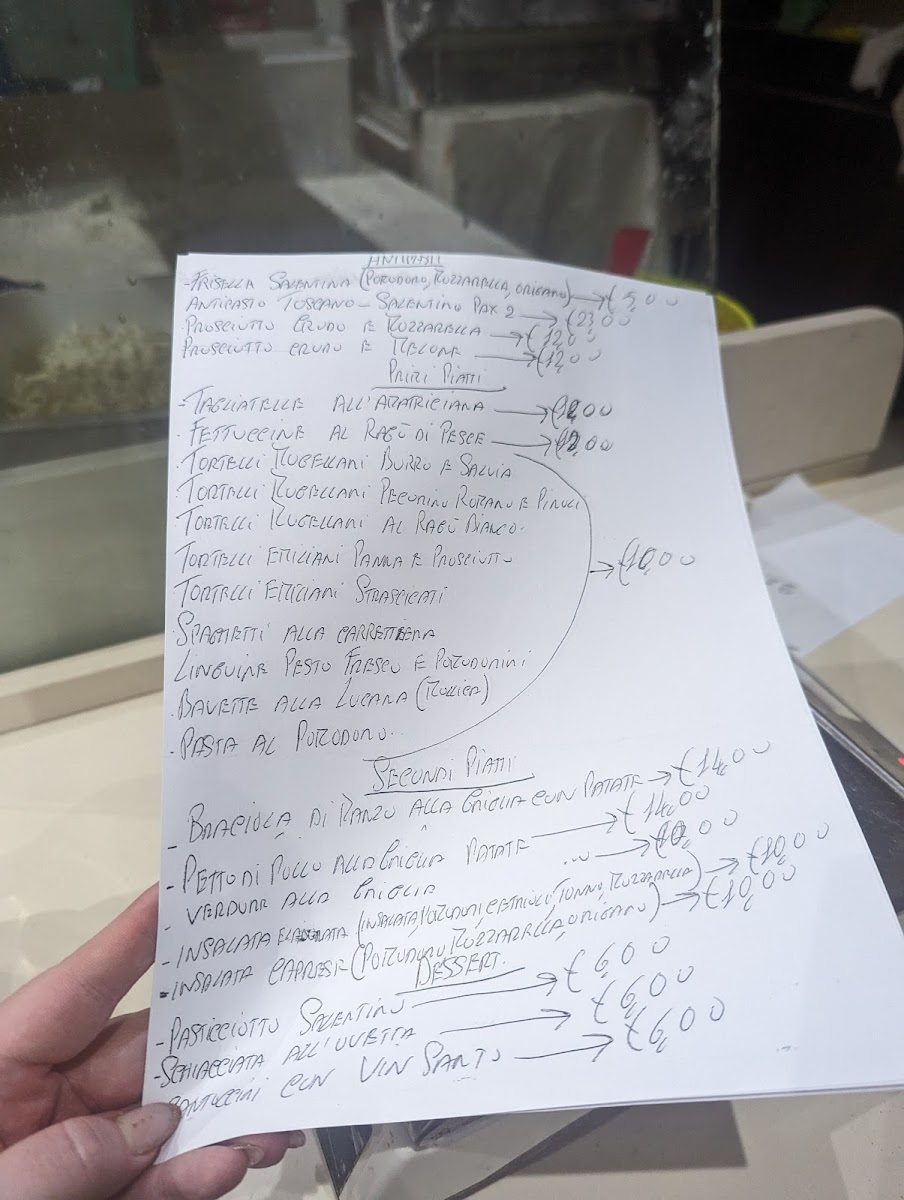 ANTIPASTI
-FRISELLA SALENTINA (POMODORO, MOZZARELLA, ORIGANO) → €5,00
ANTIPASTO TOSCANO - SALENTINO PAX 2 → €23,00
PROSCIUTTO CRUDO E MOZZARELLA → €12,00
PROSCIUTTO CRUDO E MELONE → €12,00
PRIMI PIATTI
-TAGLIATELLE ALL'AMATRICIANA → €12,00
-FETTUCCINE AL RAGÙ DI PESCE → €12,00
TORTELLI MUGELLANI BURRO E SALVIA
TORTELLI MUGELLANI PECORINO ROMANO E PINOLI
TORTELLI MUGELLANI AL RAGÙ BIANCO.
TORTELLI EMILIANI PANNA E PROSCIUTTO → €10,00
TORTELLI EMILIANI STRASCICATI
SPAGHETTI ALLA CARRETTIERA
LINGUINE PESTO FRESCO E POMODORINI
BAVETTE ALLA LUCANA (MOLLICA)
-PASTA AL POMODORO.
SECONDI PIATTI
- BRACIOLA DI MANZO ALLA GRIGLIA CON PATATE → €14,00
- PETTO DI POLLO ALLA GRIGLIA PATATE → €14,00
- VERDURE ALLA GRIGLIA ... → €10,00
- INSALATA (INSALATA, POMODORI, CETRIOLI, TONNO, MOZZARELLA) → €10,00
-INSALATA CAPRESE (POMODORO, MOZZARELLA, ORIGANO) → €10,00
DESSERT.
-PASTICCIOTTO SALENTINO → €6,00
-SCHIACCIATA ALL'UVETTA → €6,00
CANTUCCINI CON VIN SANTO → €6,00